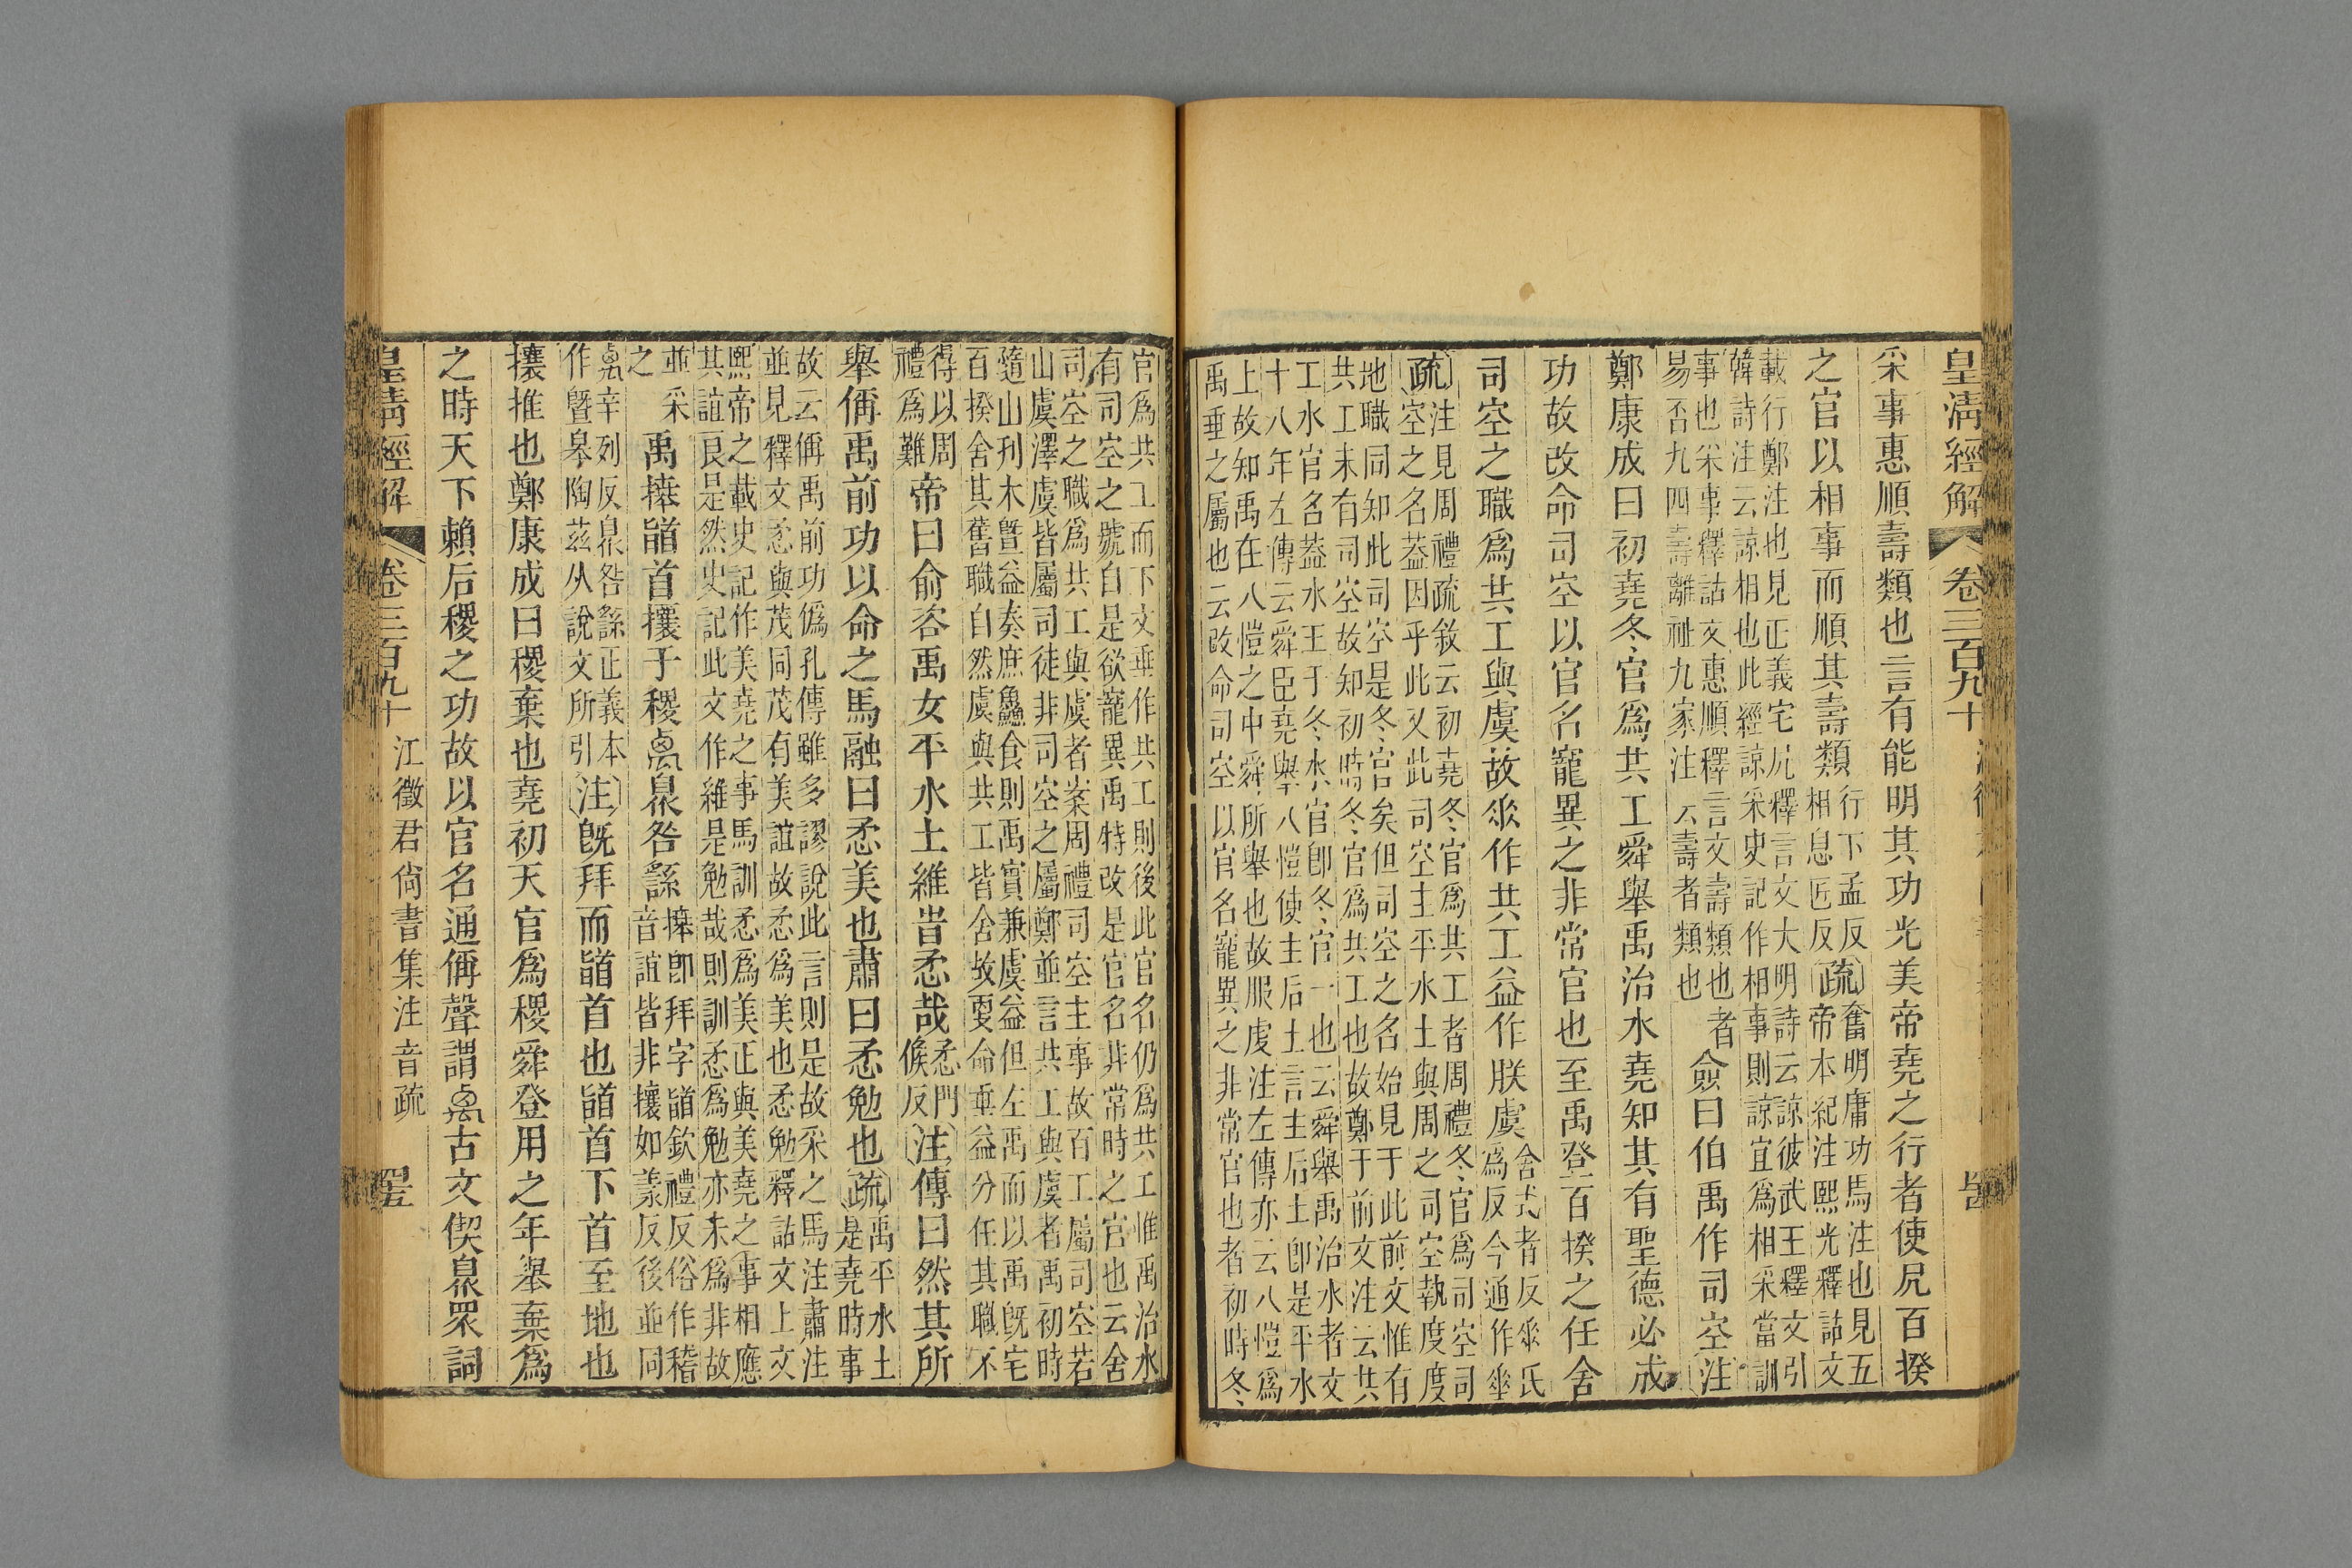 皇清經解 卷三百九十
采事惠順壽類也言有能明其功光美帝堯之行者使凥百揆
之官以相事而順其壽類
行下孟反
相息匠反
疏
奮明庸功馬注也見五
帝本紀注熙光釋詁文
載行鄭注也見正義宅凥釋言文大明詩云諒彼武王釋文引
韓詩注云諒相也此經諒采史記作相事則諒宜爲相采當訓
事也采事釋詁文惠順釋言文壽類也者
易否九四壽離祉九家注云壽者類也
僉曰伯禹作司空注
鄭康成曰初堯冬官爲共工舜舉禹治水堯知其有聖德必成
功故改命司空以官名寵異之非常官也至禹登百揆之任舍
司空之職爲共工與虞故𠂹作共工益作朕虞
舍式者反𠂹氏
爲反今通作𠂹
疏
注見周禮疏敘云初堯冬官爲共工者周禮冬官爲司空司
空之名葢因乎此又此司空主平水土與周之司空執度度
地職同知此司空是冬官矣但司空之名始見于此前文惟有
共工未有司空故知初時冬官爲共工也故鄭于前文注云共
工水官名葢水王于冬水官卽冬官一也云舜舉禹治水者文
十八年左傳云舜臣堯舉八愷使主后土言主后土卽是平水
上故知禹在八愷之中舜所舉也故服虔注左傳亦云八愷爲
禹垂之屬也云改命司空以官名寵異之非常官也者初時冬
官爲共工而下文垂作共工則後此官名仍爲共工惟禹治水
有司空之號自是欲寵異禹特改是官名非常時之官也云舍
司空之職爲共工與虞者案周禮司空主事故百工屬司空若
山虞澤虞皆屬司徒非司空之屬鄭並言共工與虞者禹初時
隨山刊木曁益奏庶鱻食則禹實兼虞益但左禹而以禹旣宅
百揆舍其舊職自然虞與共工皆舍故㪅命垂益分任其職不
得以周
禮爲難
帝曰俞咨禹女平水土維旹𢘓哉
𢘓門
候反
注
傳曰然其所
舉偁禹前功以命之馬融曰𢘓美也肅曰𢘓勉也
疏
禹平水土
是堯時事
故云偁禹前功僞孔傳雖多謬說此言則是故采之馬注肅注
並見釋文𢘓與茂同茂有美誼故𢘓爲美也𢘓勉釋詁文上文
熙帝之載史記作美堯之事馬訓𢘓爲美正與美堯之事相應
其誼良是然史記此文作維是勉哉則訓𢘓爲勉亦未爲非故
並采
之
禹𢷎䭫首攘于稷𥜽㒸咎繇
𢷎卽拜字䭫欽禮反俗作稽
音誼皆非攘如羕反後並同
𥜽辛列反㒸咎繇正義本
作曁皋陶茲从說文所引
注
旣拜而䭫首也䭫首下首至地也
攘推也鄭康成曰稷棄也堯初天官爲稷舜登用之年舉棄爲
之時天下賴后稷之功故以官名通偁聲謂𥜽古文偰㒸眾詞
皇清經解 卷三百九十 江徵君尙書集注音疏